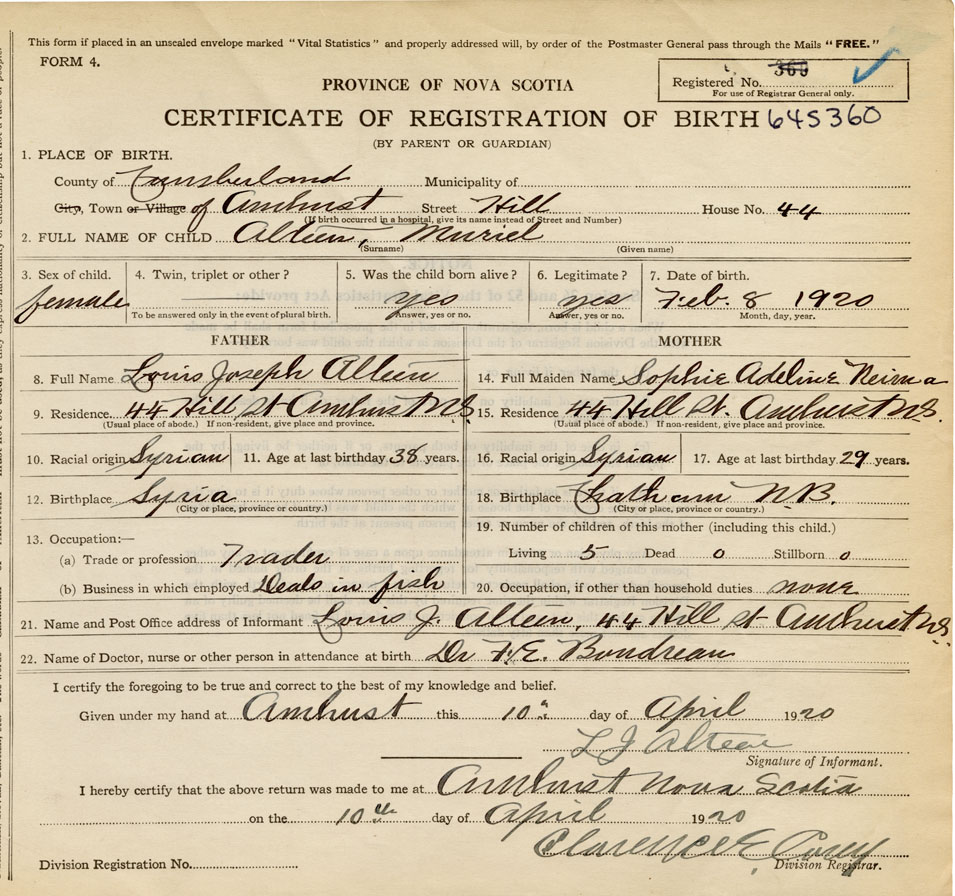 This form if placed in an unsealed envelope marked "Vital Statistics" and properly addressed will, by order of the Postmaster General pass through the Mails "FREE."
FORM 4.
PROVINCE OF NOVA SCOTIA
Registered No. 360
For use of Registrar General only.
CERTIFICATE OF REGISTRATION OF BIRTH 645360
(BY PARENT OR GUARDIAN)
1. PLACE OF BIRTH.
County of Cumberland Municipality of
City, Town or Village of Amhurst Street Hill House No. 44
(If birth occurred in a hospital, give its name instead of Street and Number)
2. FULL NAME OF CHILD Alteen, Muriel
(Surname) (Given name)
3. Sex of child. 4. Twin, triplet or other? 5. Was the child born alive? 6. Legitimate? 7. Date of birth.
female yes yes Feb. 8 1920
To be answered only in the event of plural birth. Answer, yes or no. Answer, yes or no. Month, day, year.
FATHER MOTHER
8. Full Name Louis Joseph Alteen 14. Full Maiden Name Sophie Adeline
9. Residence 44 Hill St Amhurst NS 15. Residence 44 Hill St. Amhurst NS.
(Usual place of abode.) If non-resident, give place and province. (Usual place of abode.) If non-resident, give place and province.
10. Racial origin Syrian 11. Age at last birthday 38 years. 16. Racial origin Syrian 17. Age at last birthday 29 years.
12. Birthplace Syria 18. Birthplace Chatham N.B.
(City or place, province or country.) (City or place, province or country.)
13. Occupation:— 19. Number of children of this mother (including this child.)
(a) Trade or profession Trader Living 5 Dead 0 Stillborn 0
(b) Business in which employed Deals in fish 20. Occupation, if other than household duties none
21. Name and Post Office address of Informant Louis J. Alteen, 44 Hill St Amhurst NS.
22. Name of Doctor, nurse or other person in attendance at birth Dr F. E. Boudreau
I certify the foregoing to be true and correct to the best of my knowledge and belief.
Given under my hand at Amhurst this 10 day of April 1920
L J Alteen
Signature of Informant.
I hereby certify that the above return was made to me at Amhurst Nova Scotia
on the 10th day of April 1920
Clarence E
Division Registration No. Division Registrar.